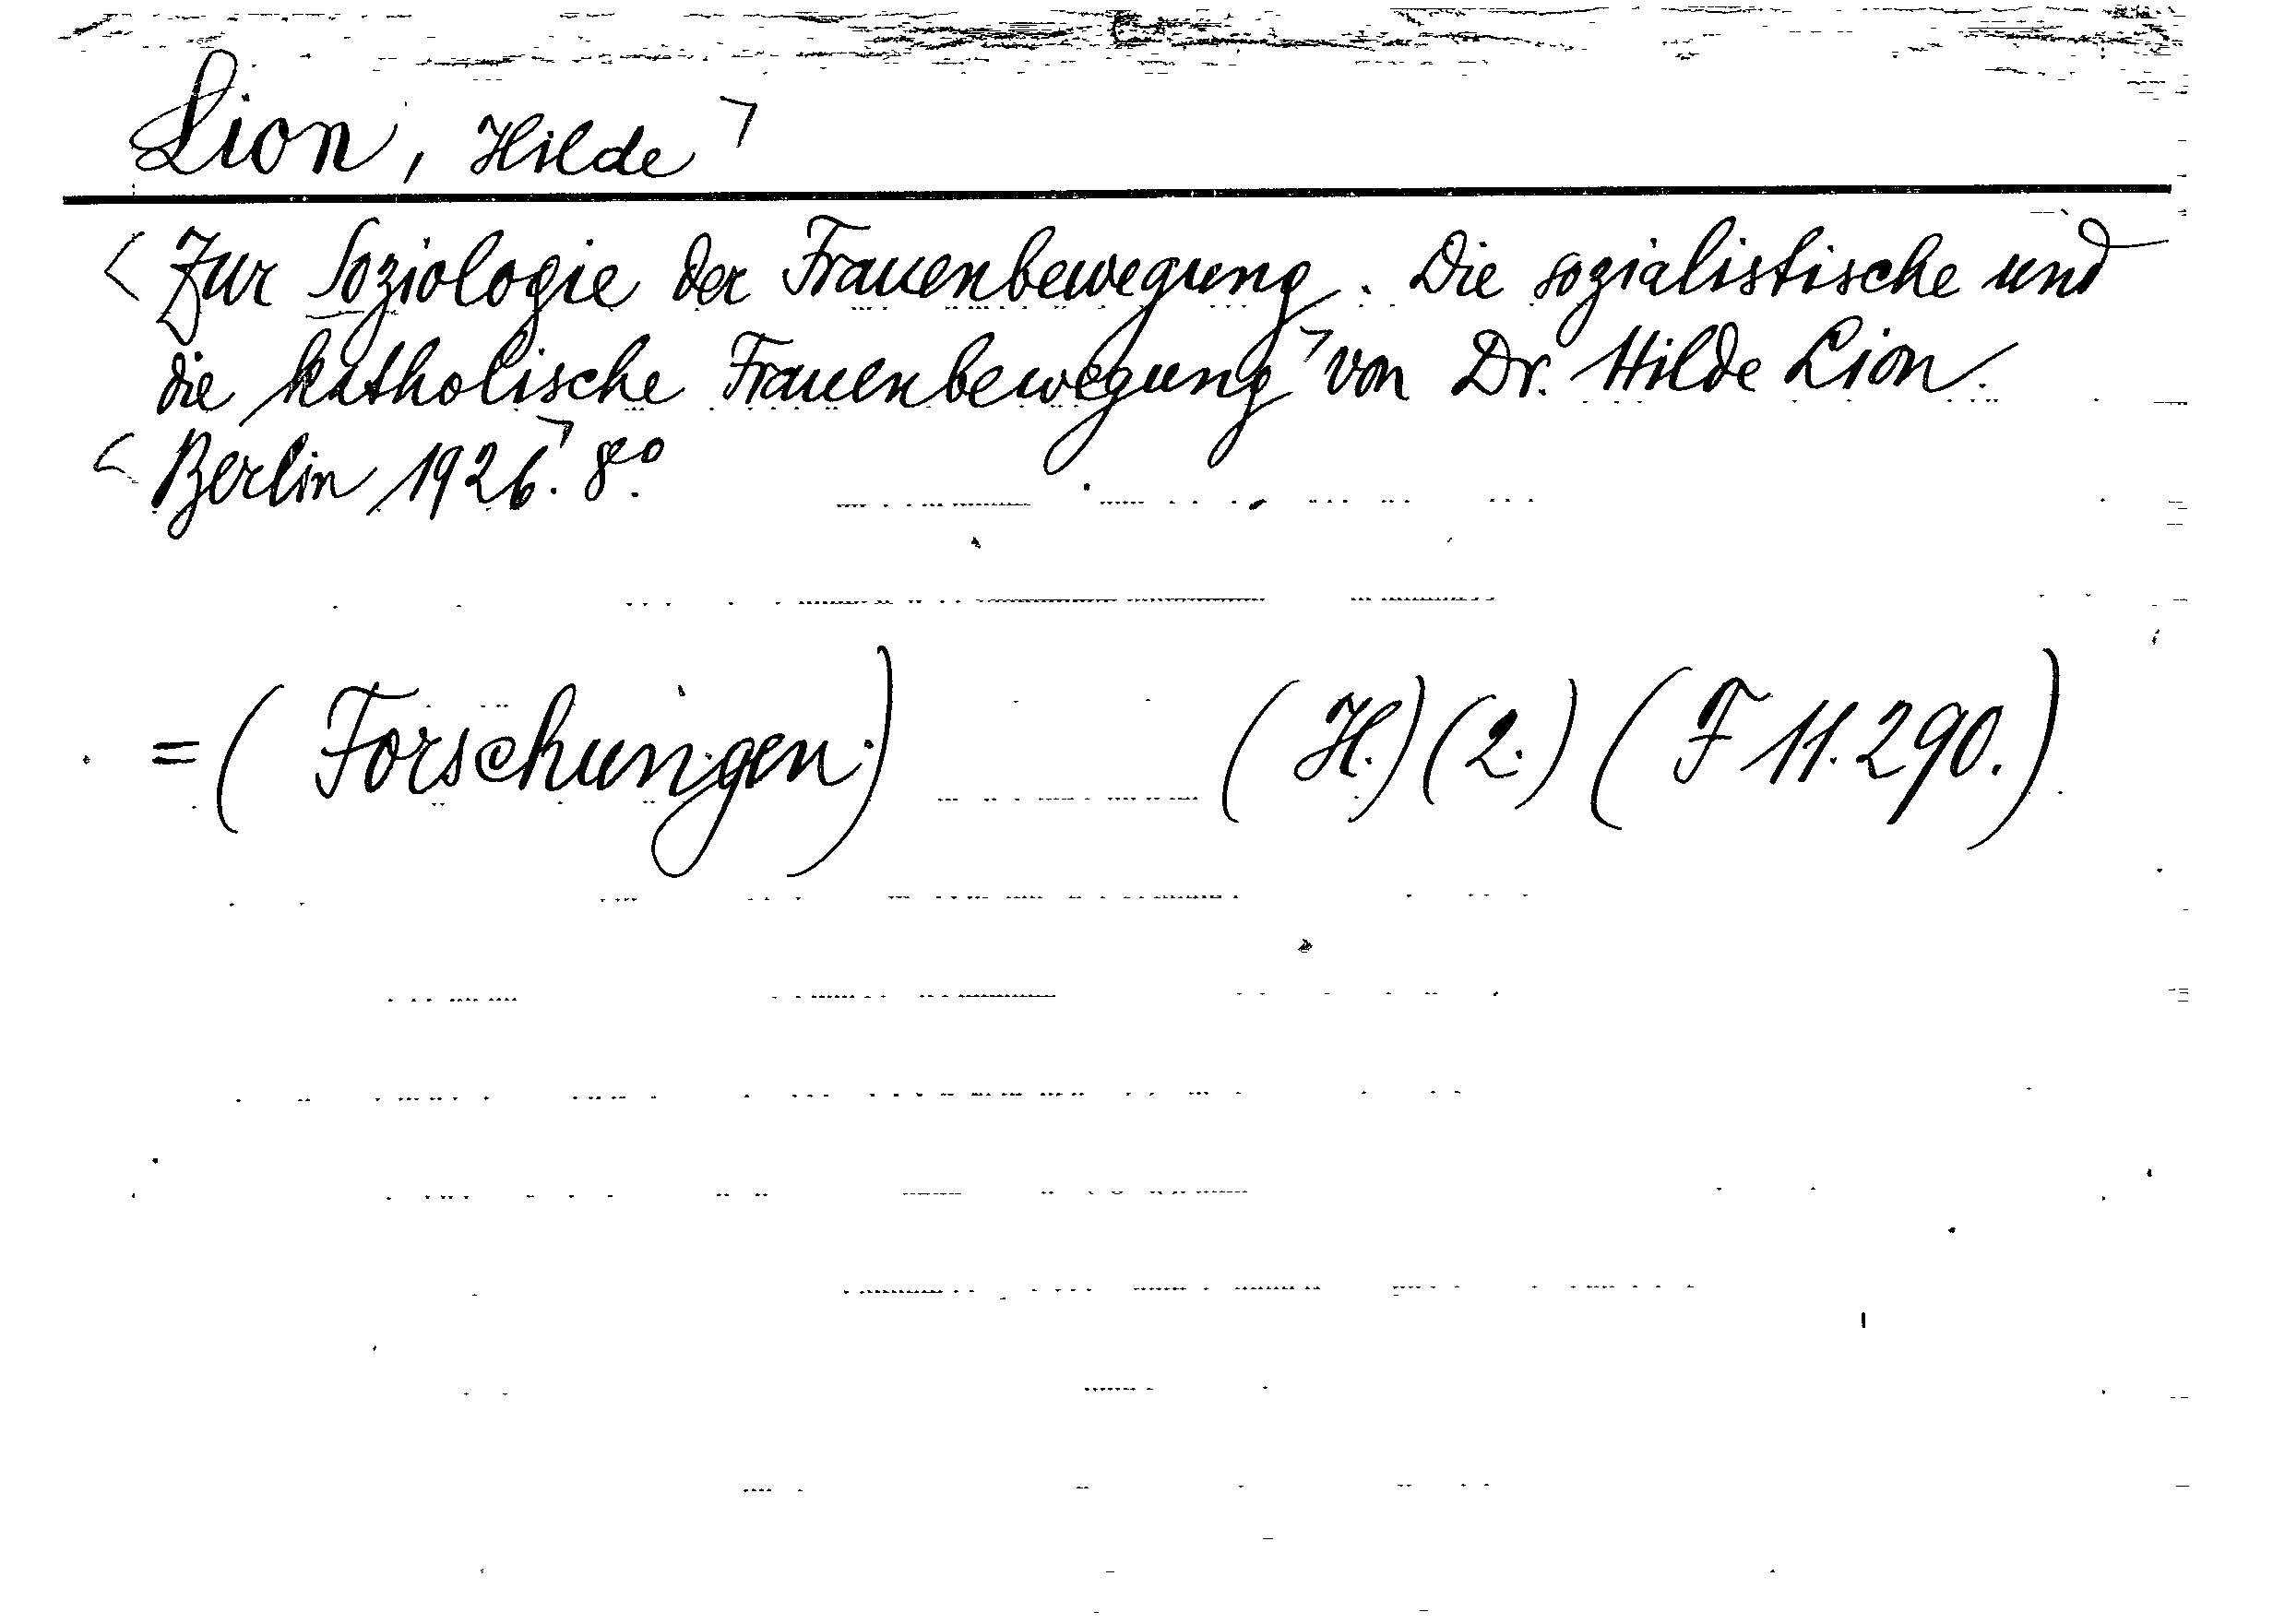 Lion, Hilde ¬
< Zur Soziologie der Frauenbewegung. Die sozialistische und
die katholische Frauenbewegung ¬ von Dr. Hilde Lion.
< Berlin 1926. ¬ 8°.
= (Forschungen.) (H.) (2.) (F 11.290.)